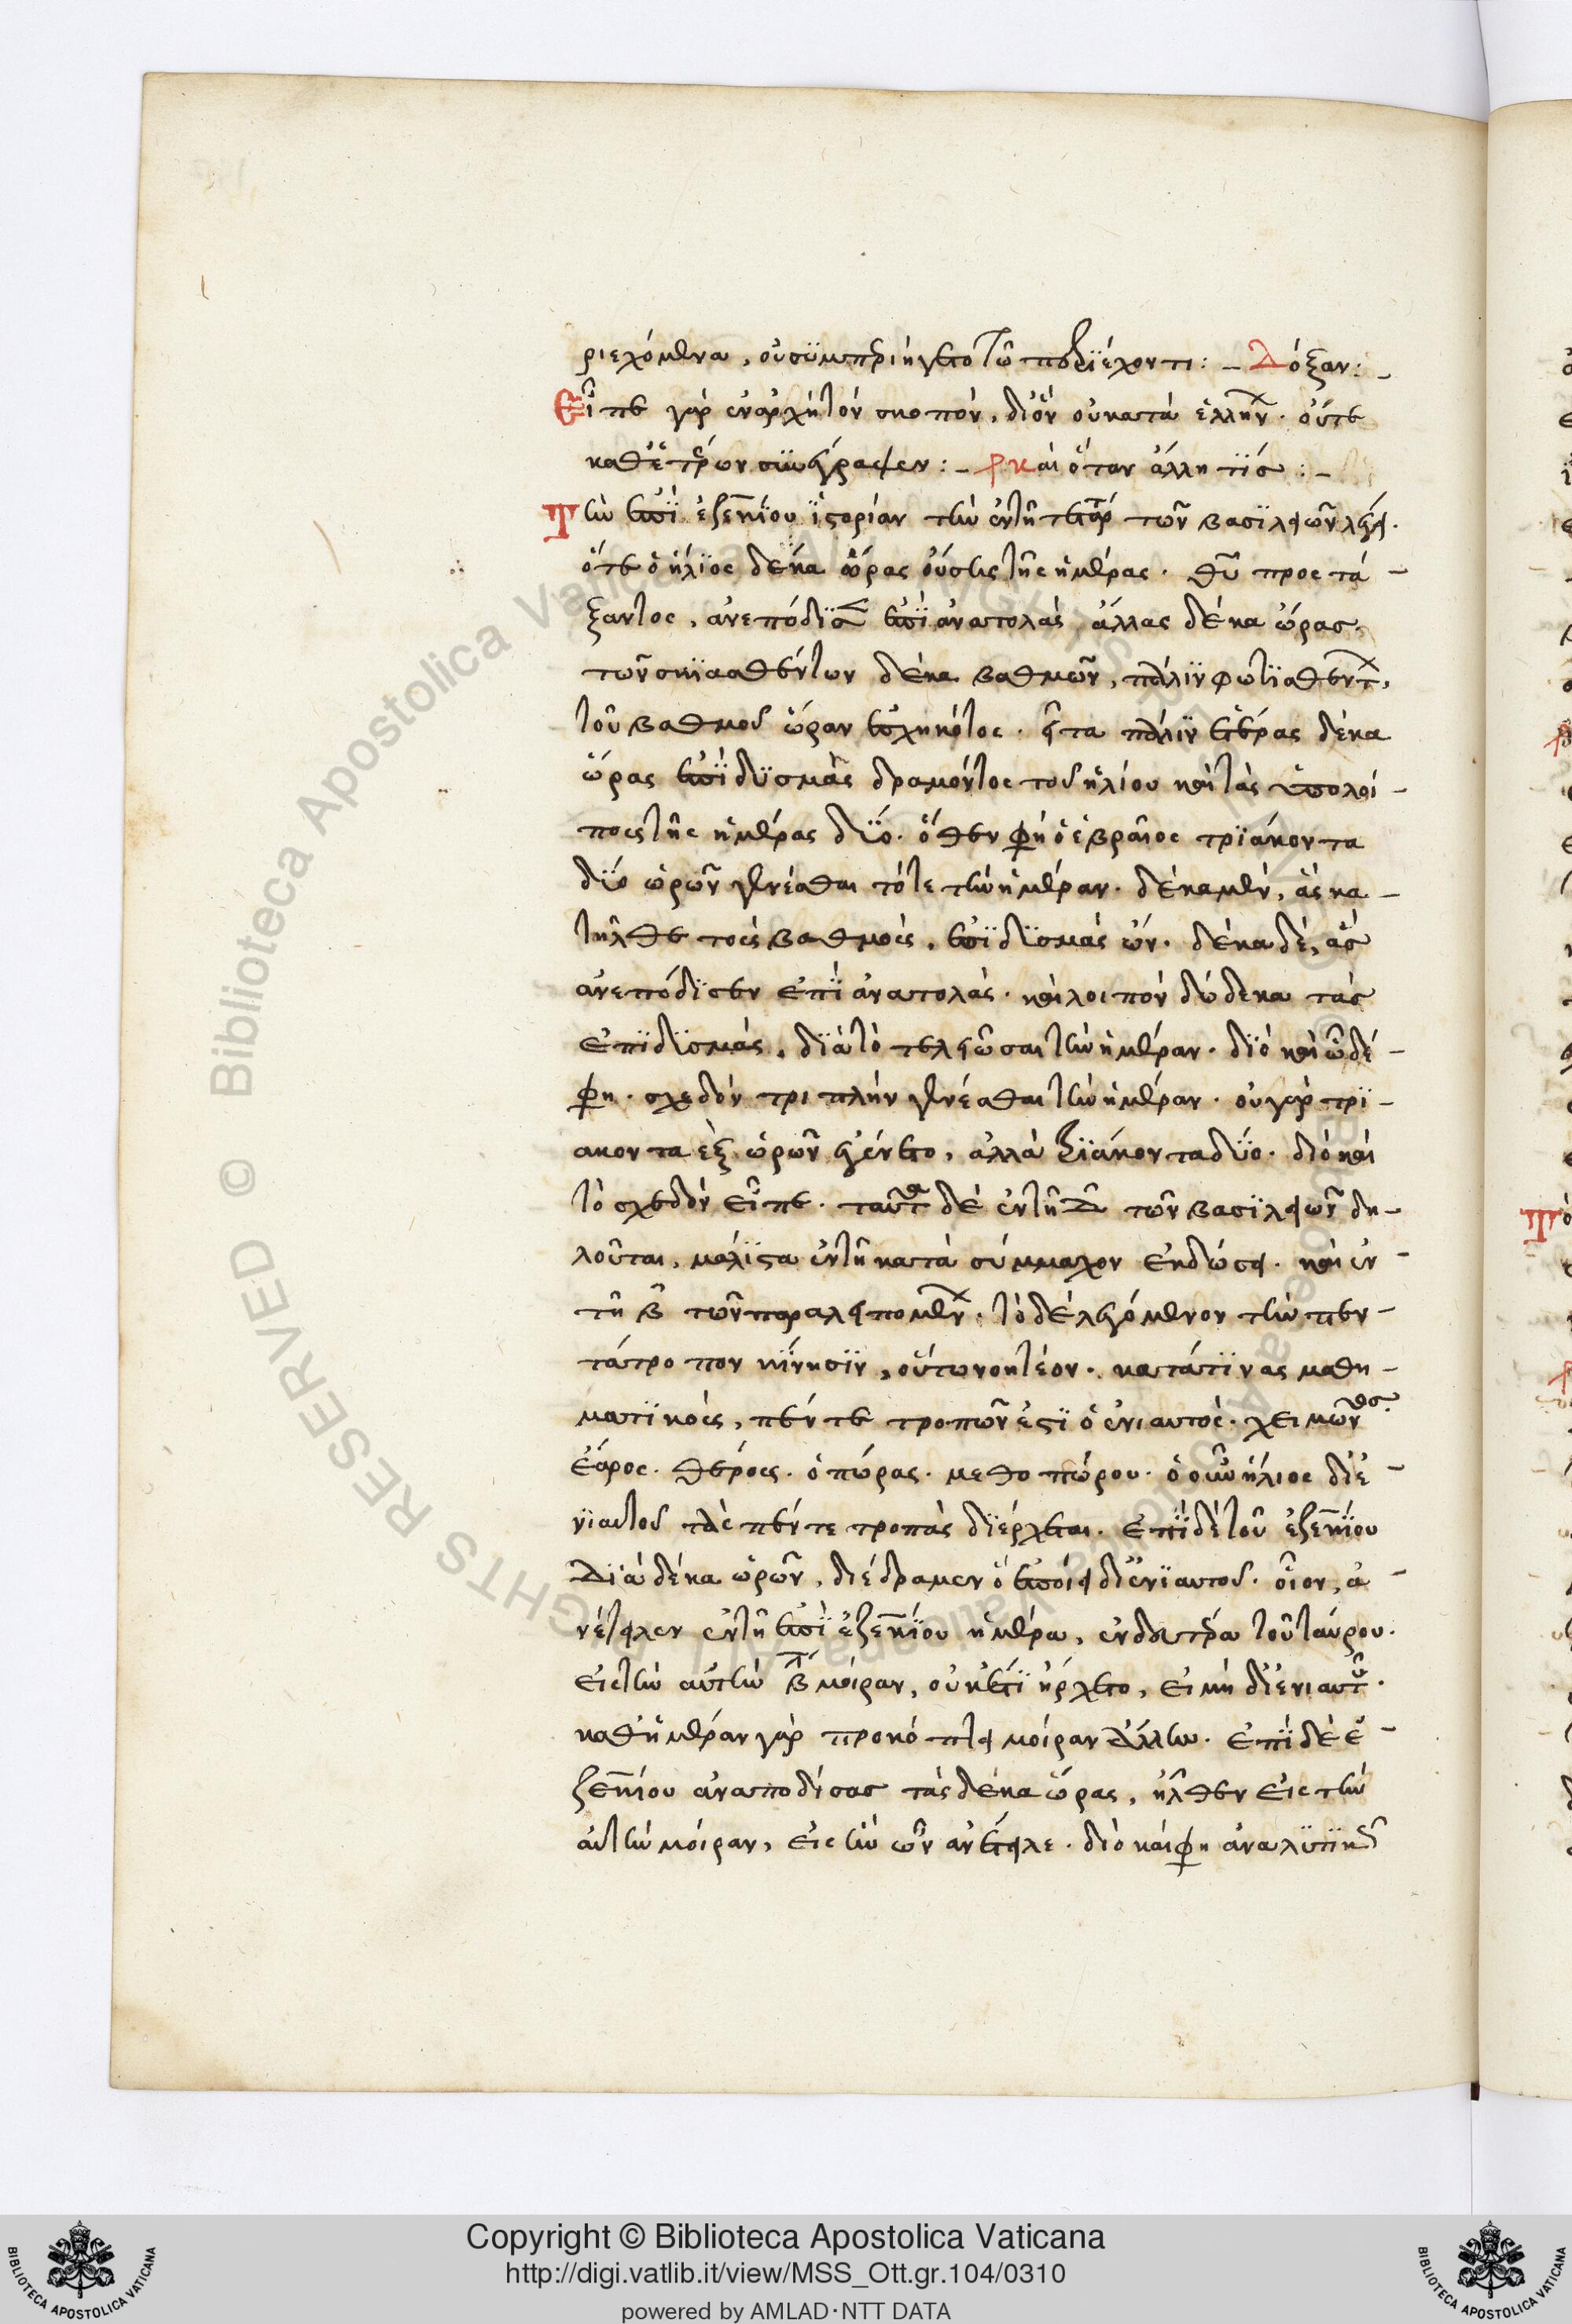 ριεχόμενα, οὐ συμπεριήγετο τῶ περιέχοντι : – Δόξαν : –
Εἶπε γὰρ ἐν ἀρχῇ τὸν σκοπόν, δι' ὃν οὐ κατὰ ἑλλήν. οὔτε
καθ' ἑτέρων συνέγραψεν : – ρκ αι ὅταν ἄλλη τίς : –
Τὴν ἐπὶ ἐζεκίου ἱστορίαν τὴν ἐν τῇ τετάρ τῶν βασιλειῶν λέγει.
ὅτε ὁ ἥλιος δέκα ὥρας οὔσης τῆς ἡμέρας. θῦ προστά –
ξαντος, ἀνεπόδισ ἐπὶ ἀνατολὰς ἄλλας δέκα ὥρας,
τῶν σκιασθέντων δέκα βαθμῶν, πάλιν φωτισθέντ,
τοῦ βαθμοῦ ὥραν ἐσχηκότος. εἶτα πάλιν ἑτέρας δέκα
ὥρας ἐπὶ δυσμὰς δραμόντος τοῦ ἡλίου καὶ τὰς ὑπολοί –
πους τῆς ἡμέρας δύο. ὅθεν φη ὁ ἑβραῖος τριάκοντα
δύο ὡρῶν γενέσθαι τότε τὴν ἡμέραν. δέκα μὲν, ἃς κα –
τῆλθε τοὺς βαθμοὺς, ἐπὶ δυσμὰς ὤν. δέκα δὲ, ἃς
ἀνεπόδισεν ἐπὶ ἀνατολάς. καὶ λοιπὸν δώδεκα τὰς
ἐπὶ δυσμάς, διὰ τὸ τελειῶσαι τὴν ἡμέραν. διὸ καὶ ὧδέ –
φη. σχεδὸν τριπλῆν γενέσθαι τὴν ἡμέραν. οὐ γὰρ τρι –
ακοντα ἓξ ὡρῶν ἐγένετο, ἀλλὰ τριάκοντα δύο. διὸ καὶ
τὸ σχεδὸν εἶπε. ταῦτα δὲ ἐν τῇ Δ τῶν βασιλειῶν δη –
λοῦται, μάλιστα ἐν τῇ κατὰ σύμμαχον ἐκδώσει. καὶ ἐν –
τῇ β τῶν παραλειπομέν. τὸ δὲ λεγόμενον τὴν πεν –
τάτροπον κίνησιν, οὕτω νοητέον. κατά τινας μαθη –
ματικοὺς, πέντε τροπῶν ἐστὶ ὁ ἐνιαυτός. χειμῶνος.
ἔαρος. θέρους. ὀπώρας. μεθοπώρου. ὁ οὖν ἥλιος δι' ἐ –
νιαυτοῦ τὰς πέντε τροπὰς διέρχεται. ἐπὶ δὲ τοῦ ἐζεκίου
Διὰ δέκα ὡρῶν, διέδραμεν ὃ ἐποίει δι' ἐνιαυτοῦ. οἷον, ἀ –
νέτειλεν ἐν τῇ ἐπὶ ἐζεκίου ἡμέρα, ἐν δευτέρα τοῦ ταύρου.
εἰς τὴν αὐτὴν β μοίραν, οὐκέτι ἤρχετο, εἰ μὴ δι' ἐνιαυτοῦ.
καθ' ἡμέραν γὰρ προκόπτει μοίραν ἄλλην. ἐπὶ δὲ ἐ –
ζεκίου ἀναποδίσας τὰς δέκα ὥρας, ἦλθεν εἰς τὴν
αὐτὴν μοίραν, εἰς ἣν ὢν ἀνέτειλε. διὸ καί φη ἀναλυτικ